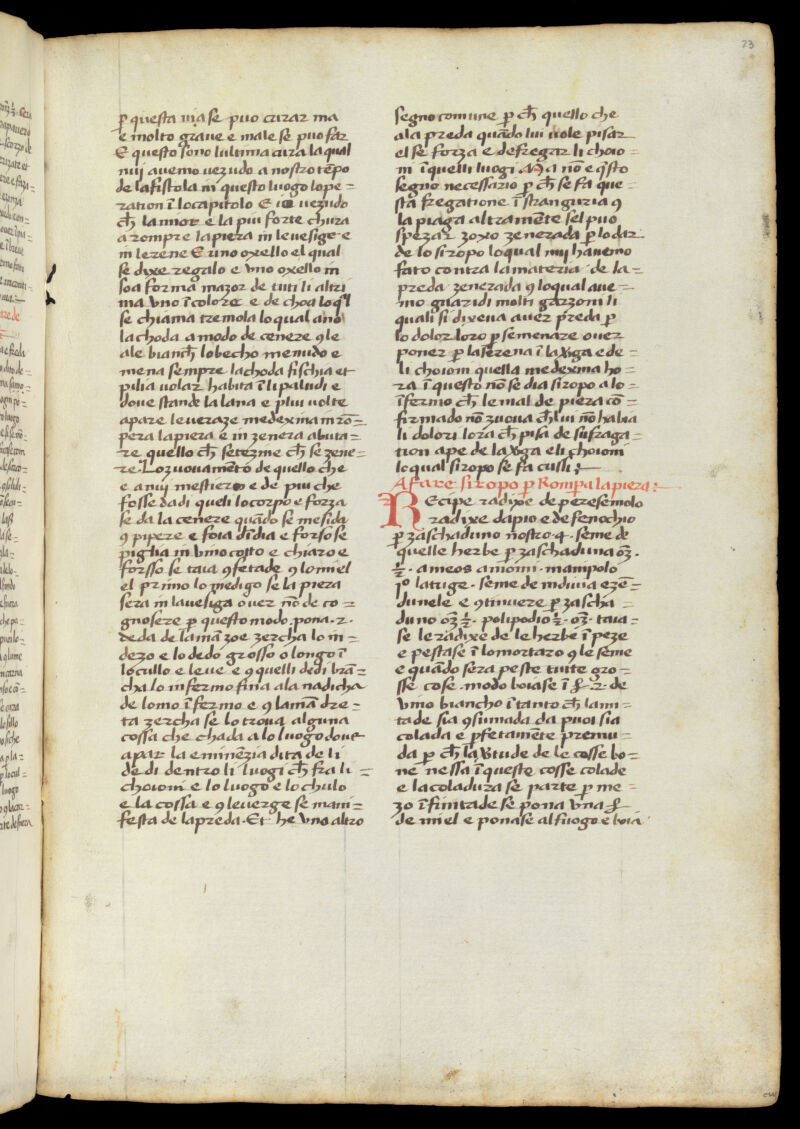 23
ꝑ questa uia se puo curar ma
e molto graue e male se puo far
E questo sono lultima cura la qual
nuj auemo uezudo a nostro tẽpo
de la fistola in questo luogo lope=
ration ĩ lo capitolo E io uezudo
ch̃ la mior e la piu forte chura
a rompre la piera in le uesige e
in le rene E uno oxello el qual
se dixe regalo e vno oxello in
soa forma mazor de tuti li altri
ma vno ĩ colore e de choa lo q̃l
se chiama tremola lo qual ano
la choda a modo de cenere ꝯ le
ale bianch̃ lo becho menudo e
mena sempre la choda fischia et
pilia uolar habita ĩ li paludi e
doue stande la lana e plui uolte
apare le ueraze medexina in rõ=
pera la piera e in zenera abuta=
re quello ch̃ se tezme ch̃ se zene=
re Lo zuouamẽto de quello che
e a nuj mestiero e de piu che
fosse dadi queli lo corpo e forza
se da la cenere quãdo se mesida
ꝯ pipere e foia dĩdia e forso se
piglia in vino cotto e chiaro e
forsso se taia ꝯfetade ꝯ lo miel
el primo lo medigo se la piera
sera in la uesiga ouer nõ de co=
gnosere ꝑ questo modo. pona .2.
deda de la mã zoe zercha lo in=
dezo e lo dedo grosso o longo ĩ
lo cullo e leue e ꝯ quelli dedi brã=
cha lo infermo fina ala nadicha
de lomo ĩfermo e ꝯ la mã dre=
ta zercha se lo troua alguna
cossa che chada a lo luogo doue
apar la eminẽzia dita de li
dedi dentro li luogi ch̃ fra li =
choioni e lo luogo e lo chulo
e la cossa e ꝯ le uerge se mani=
festa de la preda. Et he vno altro
segno comune ꝑ ch̃ quello che
a la preda quãdo lui uole pisar
el se forza e de fregar li choio=
ni ĩ quelli luogi Ma no e q̃sto
segno necessario ꝑ ch̃ se fa que=
sta fregatione ĩ stranguria ꝯ
la piaga altramẽte sel puo
spezar zoxo zenerada ꝑ lo dar
de lo siropo lo qual nuj hauemo
fato contra la materia de la=
preda zenerada ꝯ lo qual aue=
mo guaridi molti garzoni li
quali si dixeua auer preda ꝑ
lo dolor loro ꝑ semenare ouer
poner ꝑ la serena ĩ la v̾ga e de=
li choioni quella medexma ho=
ra ĩ questo nõ se dia siropo a lo=
ĩfermo ch̃ le mal de piera cõ=
firmado nõ zuoua ch̃ lui nõ habia
li dolori lora ch̃ pisa de sufraga=
tion ape de la v̾ga e li choioni
lo qual siropo se fa cusli:
A fare siropo ꝑ Romꝑ la piera:
Recipe radixe de peresemolo
radixe dapio e de fenochio
ꝑ zaschaduno nostro .4. seme de
quelle herbe ꝑ zaschaduna oz̃.
½. ameos amomi. manipolo
jº latuge. seme de indiuia e zẽ=
dunele e ꝯtinuere ꝑ zascha=
duno oz̃ ½. polipodio ½. oz̃. taia=
se le radixe de le herbe ĩ peze
e pestase ĩ lo mortaro ꝯ le seme
e quãdo sera peste tutte gro=
sse cose. modo boiase ĩ ₤ .2. de
vino biancho ĩ tanto ch̃ la mi=
tade sia ꝯsumada da puoi sia
colada e ꝑfetamẽte premu=
da ꝑ ch̃ la v̾tude de le cosse bo=
ne nessa ĩ queste cosse colade
e la coladura se parte ꝑ me=
zo ĩfinitade se pona vna ₤
de miel e ponase al fuogo e boia